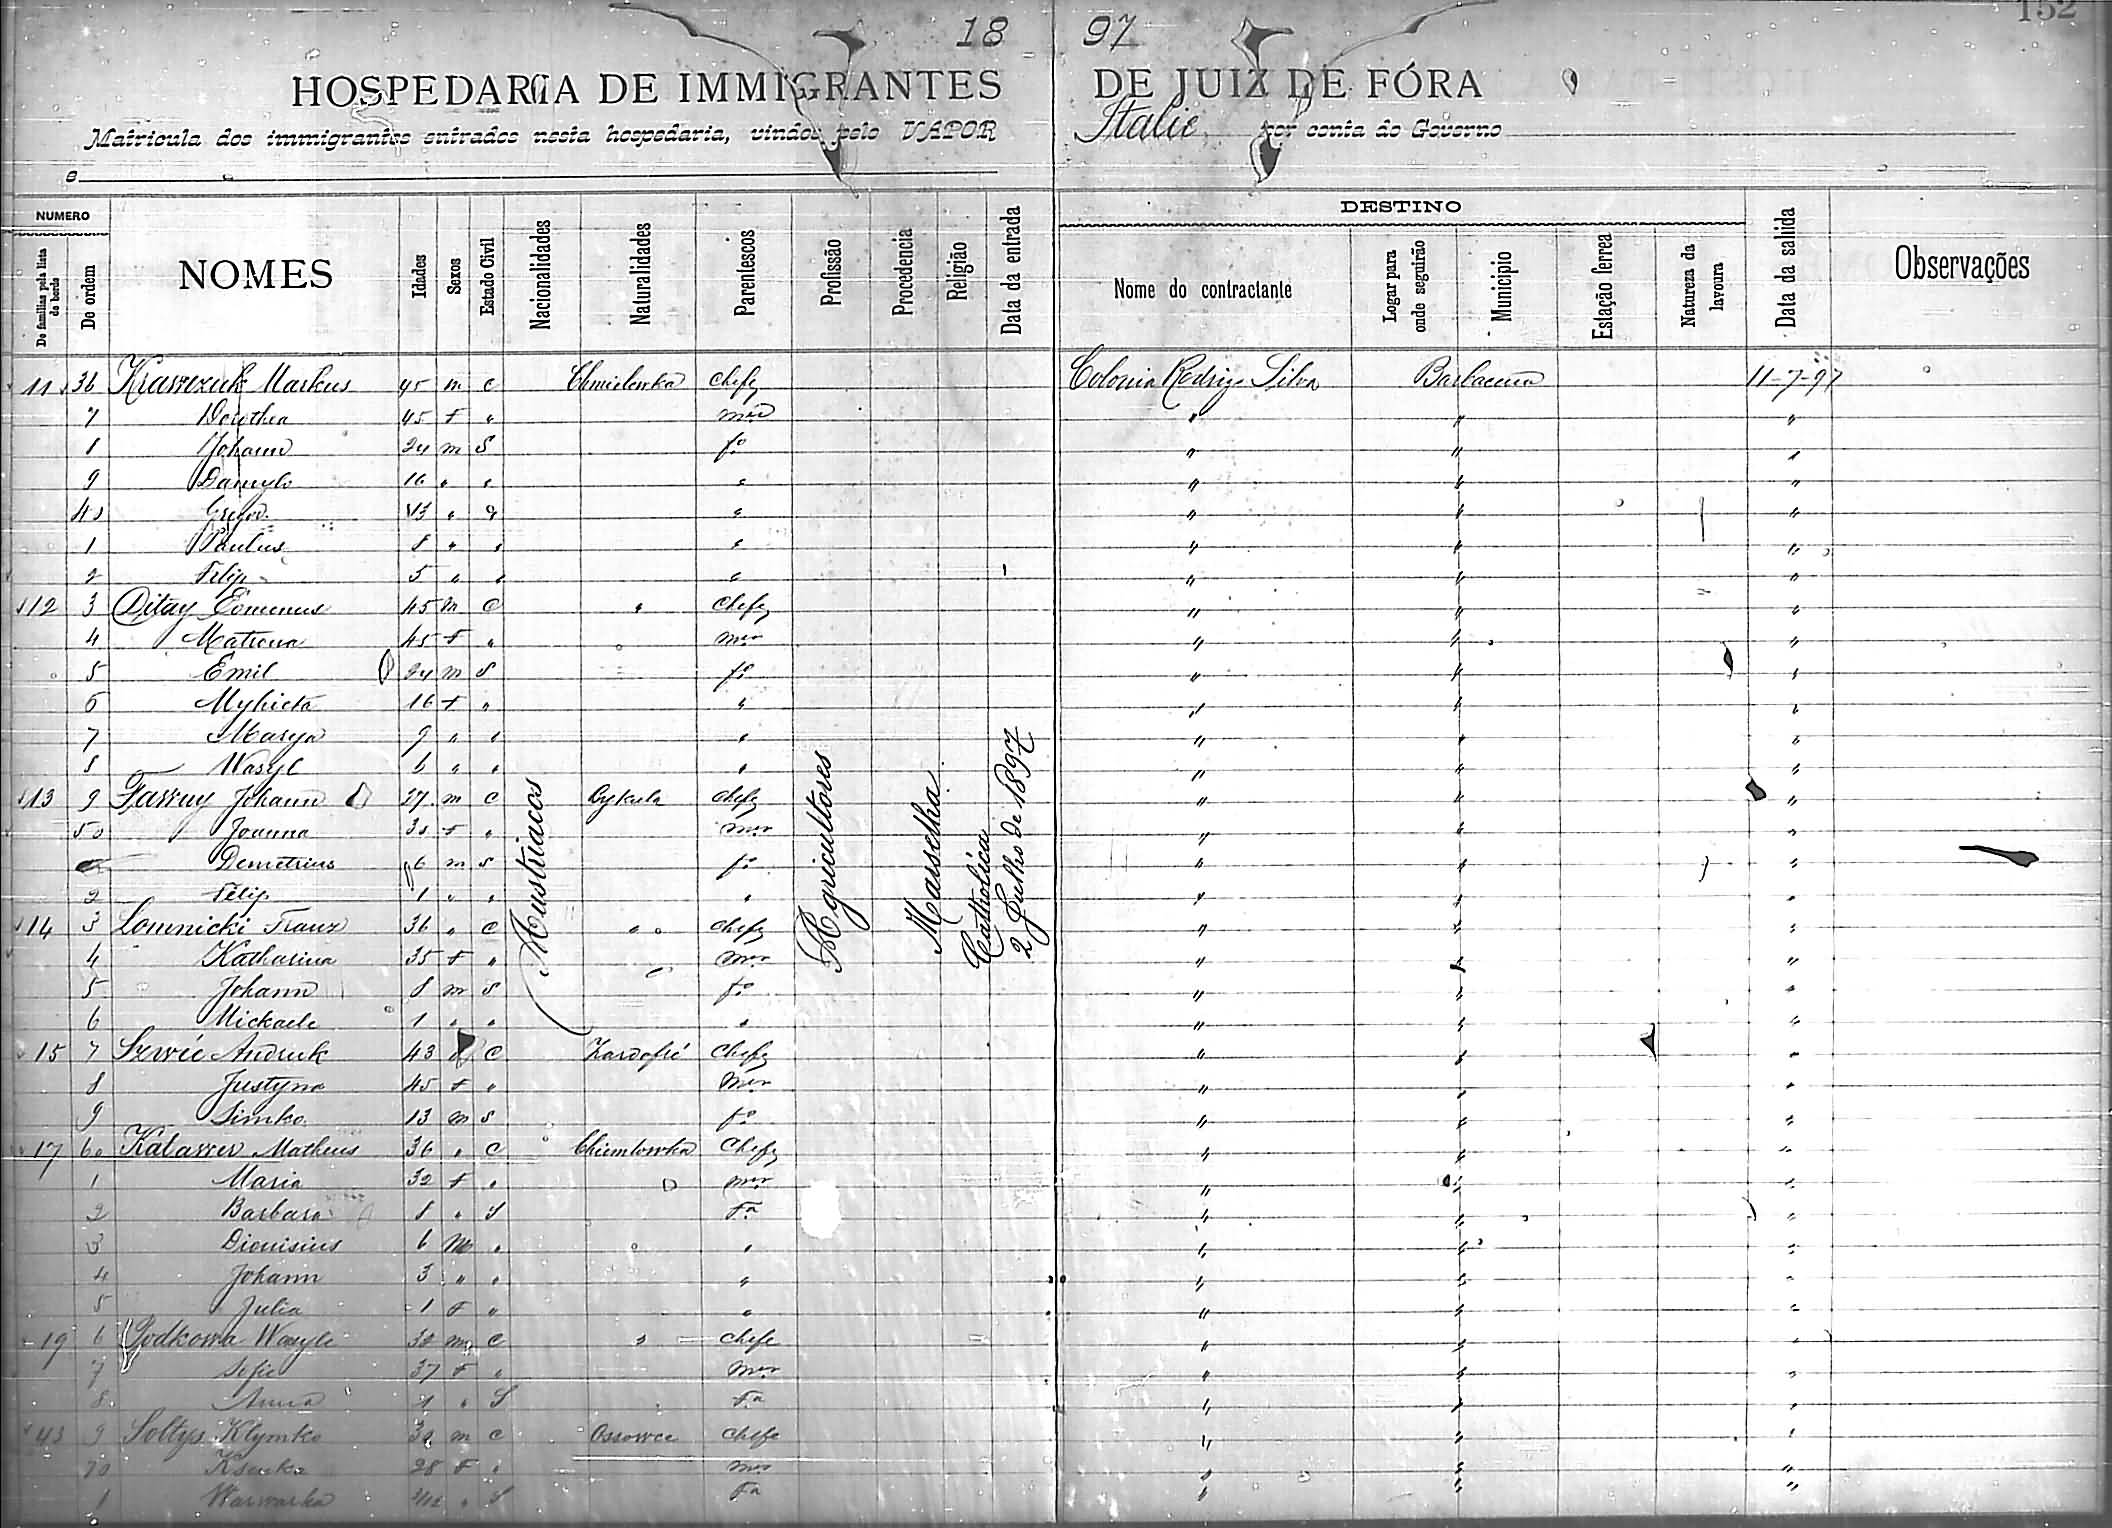 152
18 97
HOSPEDARIA DE IMMIGRANTES DE JUIZ DE FÓRA
Matricula dos immigrantes entrados nesta hospedaria, vindos pelo VAPOR Italie por conta do Governo
e
NUMERO
De familias pela lista de bordo
De ordem
NOMES
Idades
Sexos
Estado Civil
Nacionalidades
Naturalidades
Parentescos
Profissão
Procedencia
Religião
Data da entrada
DESTINO
Nome do contractante
Logar para onde seguirão
Municipio
Estação ferrea
Natureza da lavoura
Data da sahida
Observações
11 36 Krawczuk Markus 45 m c Chmielewka chefe Colonia Rodrigo Silva Barbacena 11-7-97
7 Dorothea 45 f " mer " " "
8 Johann 24 m s fo " " "
9 Danylo 16 " " " " " "
40 Grégor 13 " " " " " "
1 Paulus 8 " " " " " "
2 Filip 5 " " " " " "
12 3 Ditay 45 m c " chefe " " "
4 Matrona 45 f " mer " " "
5 Emil 24 m s fo " " "
6 Myhieta 16 f " " " " "
7 Marya 9 " " " " " "
8 Wasyl 6 " " " " " "
13 9 Johann 27 m c Cykula chefe " " "
50 Joanna 30 f " mer " " "
Demetrius 6 m s fo " " "
2 Felip 1 " " " " " "
14 3 Lomnicki Franz 36 " c " chefe " " "
4 Katharina 35 f " mer " " "
5 Johann 8 m s fo " " "
6 Mickaele 1 " " " " " "
15 7 Szewic Andruk 43 c chefe " " "
8 Justyna 45 f " mer " " "
9 Simko 13 m s fo " " "
17 60 Kalawer Matheus 36 " c Chiemlowka chefe " " "
1 Maria 32 f " mer " " "
2 Barbara 8 " s fa " " "
3 Dionisius 6 m " " " " "
4 Johann 3 " " " " " "
5 Julia 1 f " " " " "
19 6 Podkowa Wasyle 38 m c " chefe " " "
7 Sofie 37 f " mer " " "
8 Anna 1 " s fa " " "
43 9 Soltys Klymko 30 m c Ossowce chefe " " "
70 Ksenka 28 f " mer " " "
1 Warwarka " s fa " " "
Austriacos
Agricultores
Marselha
Catholica
2 Julho de 1897